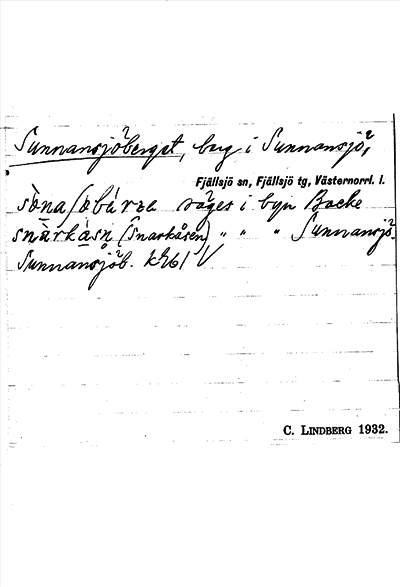 Sunnansjöberget, berg i Sunnansjö,
Fjällsjö sn, Fjällsjö tg, Västernorrl. l.
söna/öbárʒe säges i byn Backe
snàrkásn (Snarkåsen) " " " Sunnansjö.
Sunnansjöb. k
C. LINDBERG 1932.